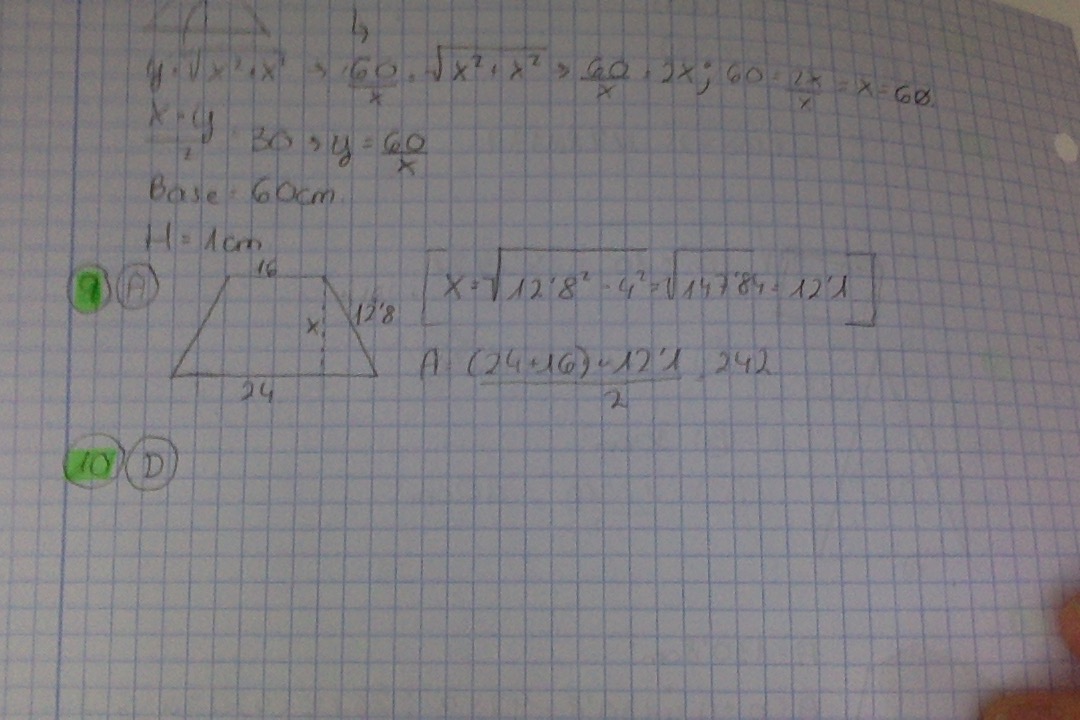 L,
y = √x² + x² → 60/x = √x² + x² → 60/x = 2x; 60 = 2x/x = x = 60
x · y / 2 = 30 → y = 60/x
Base = 60cm
H = 1cm
9 A 16 [x = √12'8² - 4² = √147'84 = 12'1]
x 12'8
A = (24+16) · 12'1 / 2 = 242
24
10 D